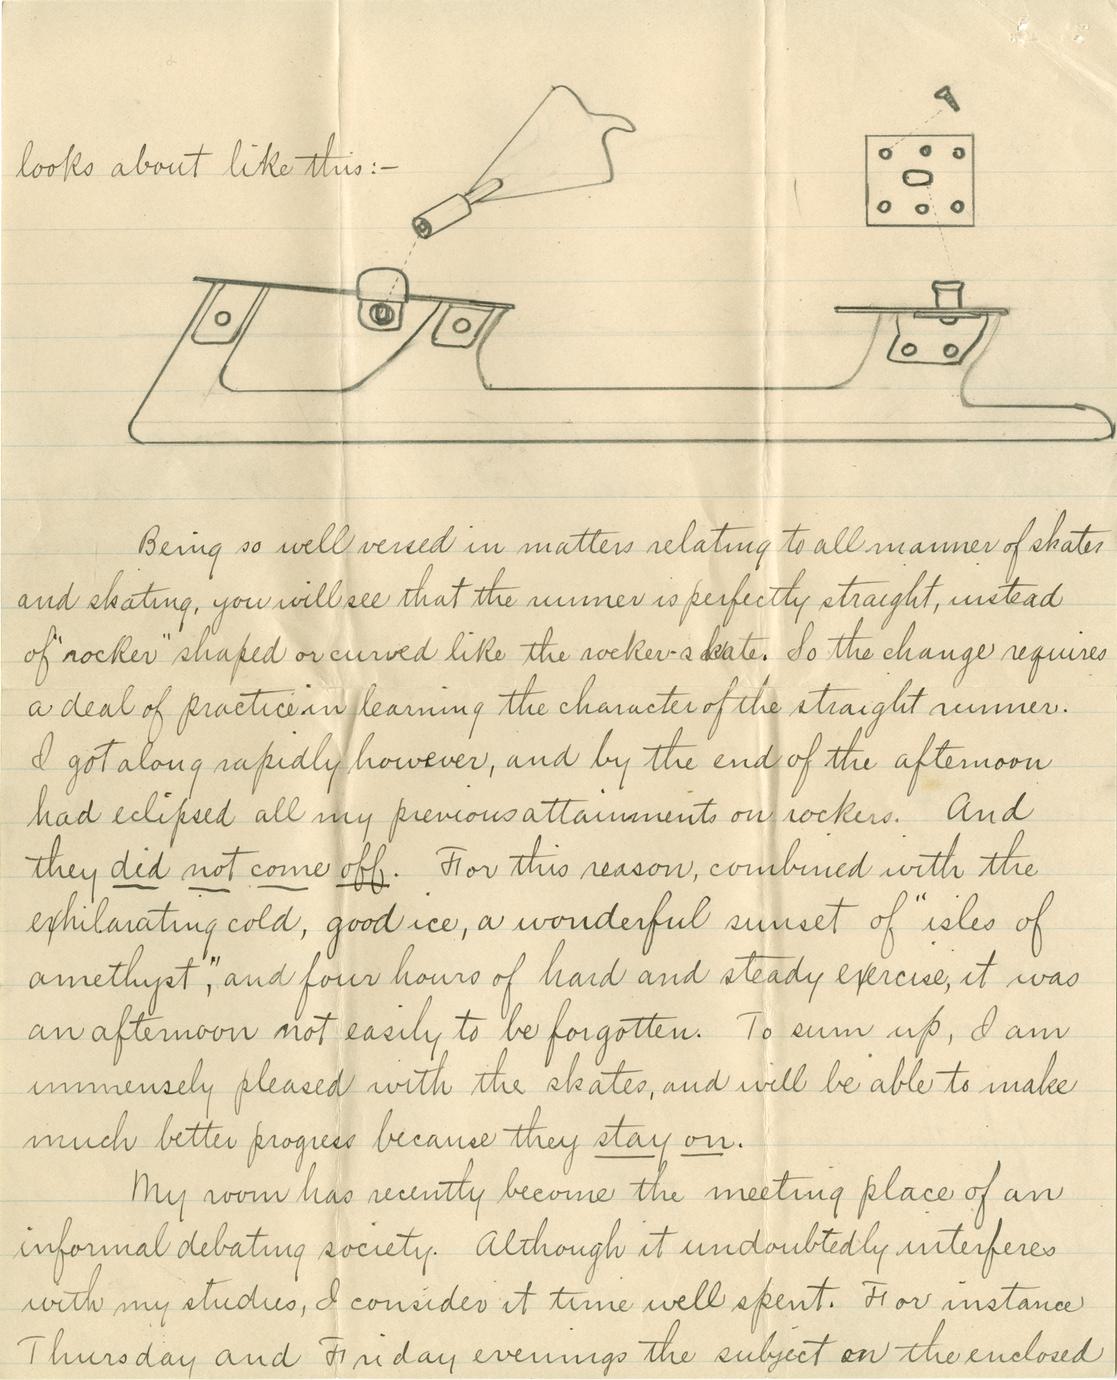 looks about like this:—
Being so well versed in matters relating to all manner of skates
and skating, you will see that the runner is perfectly straight, instead
of "rocker" shaped or curved like the rocker-skate. So the change requires
a deal of practice in learning the character of the straight runner.
I got along rapidly however, and by the end of the afternoon
had eclipsed all my previous attainments on rockers. And
they did not come off. For this reason, combined with the
exhilarating cold, good ice, a wonderful sunset of "isles of
amethyst", and four hours of hard and steady exercise, it was
an afternoon not easily to be forgotten. To sum up, I am
immensely pleased with the skates, and will be able to make
much better progress because they stay on.
My room has recently become the meeting place of an
informal debating society. Although it undoubtedly interferes
with my studies, I consider it time well spent. For instance
Thursday and Friday evenings the subject on the enclosed